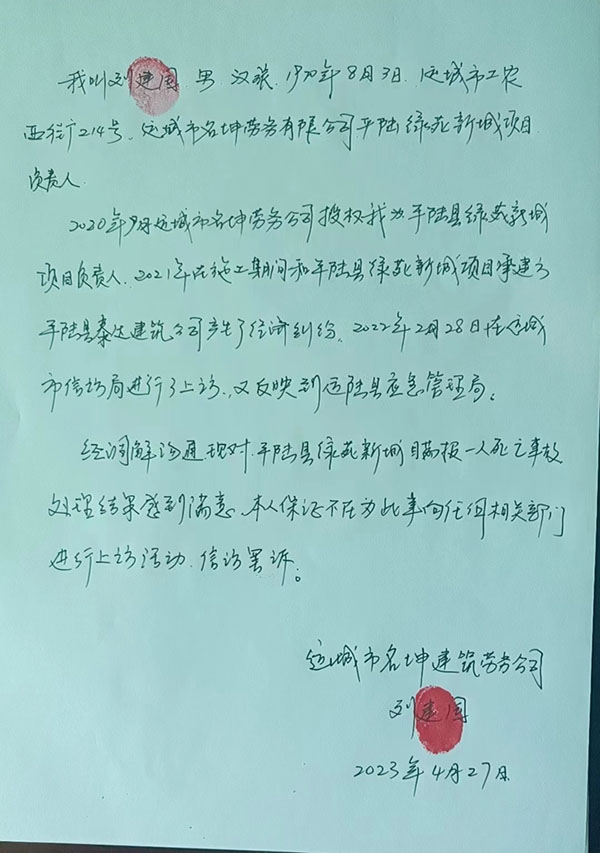 我叫刘建国 男 汉族 1970年8月3日 运城市工农
西街214号、运城市名坤劳务有限公司平陆绿苑新城项目
负责人
2020年9月运城市名坤劳务公司授权我为平陆县绿苑新城
项目负责人、2021年在施工期间和平陆县绿苑新城项目承建方
平陆县泰达建筑公司产生了经济纠纷、2022年2月28日在运城
市信访局进行了上访、又反映到运陆县应急管理局。
经调解沟通现对平陆县绿苑新城瞒报一人死亡事故
处理结果感到满意、本人保证不在为此事向任何相关部门
进行上访活动、信访罢诉。
运城市名坤建筑劳务公司
刘建国
2023年4月27日